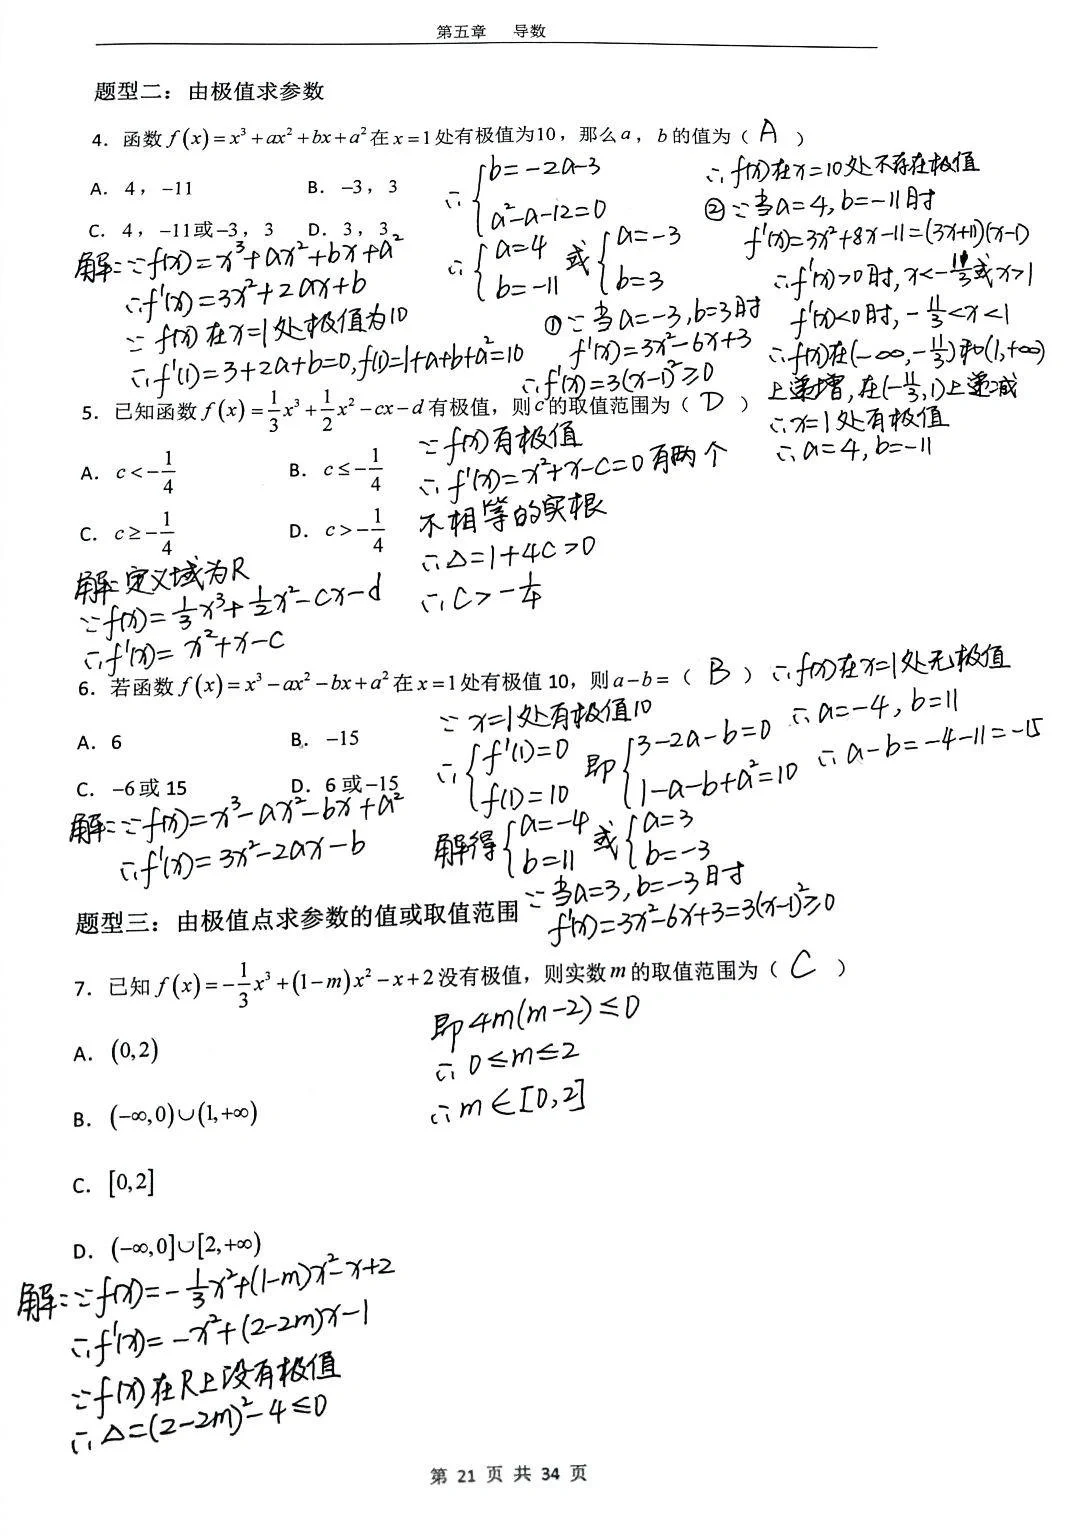 第五章 导数
题型二：由极值求参数
4. 函数 f(x)=x³+ax²+bx+a² 在 x=1 处有极值为10，那么 a，b 的值为（ A ）
A. 4，-11
B. -3，3
C. 4，-11或-3，3
D. 3，3
解:∵f(x)=x³+ax²+bx+a²
∴f'(x)=3x²+2ax+b
∵f(x)在x=1处极值为10
∴f'(1)=3+2a+b=0,f(1)=1+a+b+a²=10
∴{b=-2a-3
a²-a-12=0
∴{a=4
b=-11
或{a=-3
b=3
①∵当a=-3,b=3时
f'(x)=3x²-6x+3
∴f'(x)=3(x-1)²≥0
∴f(x)在x=10处不存在极值
②∵当a=4,b=-11时
f'(x)=3x²+8x-11=(3x+11)(x-1)
∴f'(x)>0时,x<-11/3或x>1
f'(x)<0时,-11/3<x<1
∴f(x)在(-∞,-11/3)和(1,+∞)
上递增,在(-11/3,1)上递减
∴x=1处有极值
∴a=4,b=-11
5. 已知函数 f(x)=1/3x³+1/2x²-cx-d 有极值，则 c 的取值范围为（ D ）
A. c<-1/4
B. c≤-1/4
C. c≥-1/4
D. c>-1/4
解:定义域为R
∵f(x)=1/3x³+1/2x²-cx-d
∴f'(x)=x²+x-c
∵f(x)有极值
∴f'(x)=x²+x-c=0有两个
不相等的实根
∴Δ=1+4c>0
∴c>-1/4
6. 若函数 f(x)=x³-ax²-bx+a² 在 x=1 处有极值 10，则 a-b=（ B ）
A. 6
B. -15
C. -6 或 15
D. 6 或 -15
解:∵f(x)=x³-ax²-bx+a²
∴f'(x)=3x²-2ax-b
∵x=1处有极值10
∴{f'(1)=0
f(1)=10
即{3-2a-b=0
1-a-b+a²=10
解得{a=-4
b=11
或{a=3
b=-3
∵当a=3,b=-3时
f'(x)=3x²-6x+3=3(x-1)²≥0
∴f(x)在x=1处无极值
∴a=-4,b=11
∴a-b=-4-11=-15
题型三：由极值点求参数的值或取值范围
7. 已知 f(x)=-1/3x³+(1-m)x²-x+2 没有极值，则实数 m 的取值范围为（ C ）
A. (0,2)
B. (-∞,0)∪(1,+∞)
C. [0,2]
D. (-∞,0]∪[2,+∞)
解:∵f(x)=-1/3x²+(1-m)x²-x+2
∴f'(x)=-x²+(2-2m)x-1
∵f(x)在R上没有极值
∴Δ=(2-2m)²-4≤0
即4m(m-2)≤0
∴0≤m≤2
∴m∈[0,2]
第 21 页 共 34 页